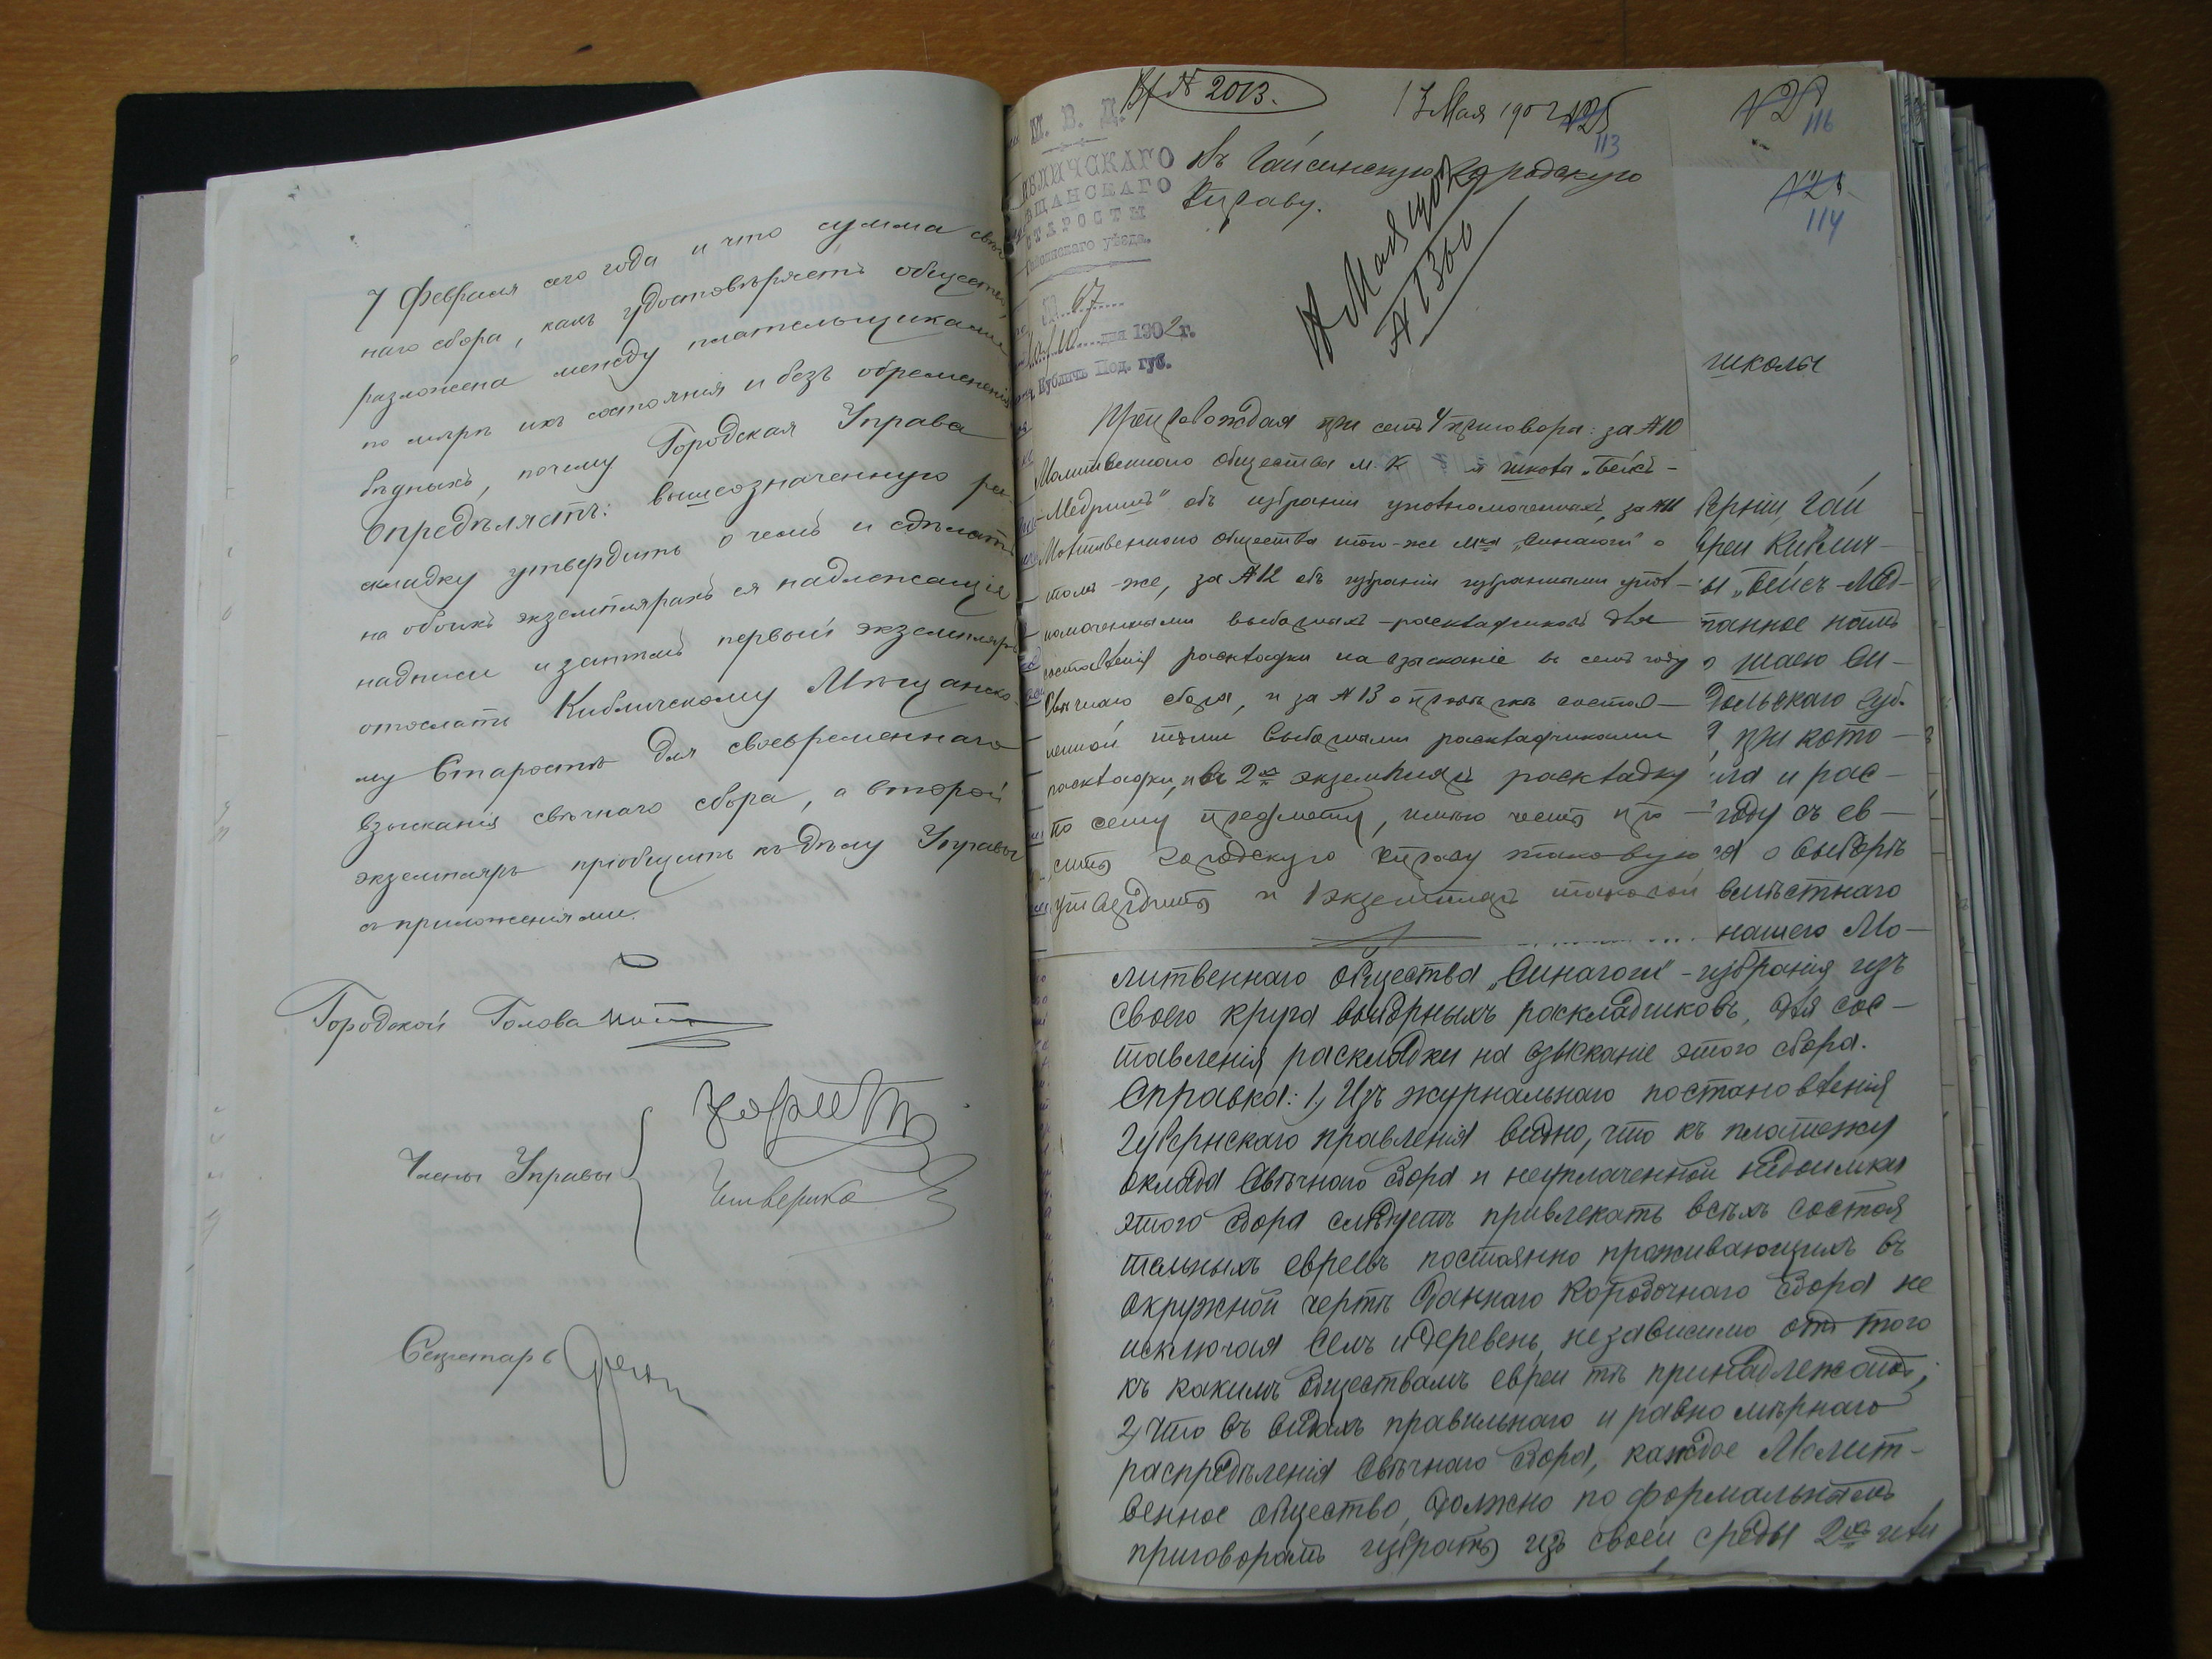 7 Февраля сего года и что сумма свѣч
наго сбора, какъ удостовѣряетъ общество,
разложена между плательщиками
по мѣрѣ ихъ состоянія и безъ обремененія
бѣдныхъ, почему Городская Управа
Опредѣляетъ: вышеозначенную рас-
кладку утвердить о чемъ и сдѣлать
на обоихъ экземплярахъ ея надлежащія
надписи и затѣмъ первый экземпляръ
отослать Кибличскому Мѣщанско-
му Старостѣ для своевременнаго
взысканія свѣчнаго сбора, а второй
экземпляръ пріобщить къ дѣлу Управы
съ приложеніями.
Городской Голова
Члены Управы
Секретарь
Вх № 2013.
17 Мая 1902
125
113
М. В. Д.
КИБЛИЧСКАГО
МѢЩАНСКАГО
СТАРОСТЫ
Гайсинскаго уѣзда.
№ 67
10 дня 1902 г.
м. Кубличъ Под. губ.
Въ Гайсинскую Городскую
Управу.
17 Мая 1902
№ 1300
Препровождая при семъ 4 приговора: за № 10
Молитвенного общества м. К школа „Бейсъ-
Медришъ" объ избраніи уполномоченныхъ, за № 11
Молитвенного общества того-же мка „Синагоги" о
томъ-же, за № 12 объ избраніи избранными упол-
номоченными выборныхъ-раскладчиковъ для
составленія раскладки на взысканіе въ семъ году
Свѣчнаго сбора, и за № 13 о провѣркѣ состав-
ленной тѣми выборными раскладчиками
раскладки, и въ 2хъ экземплярѣ раскладку
по сему предмету, имѣю честь про-
сить Городскую Управу таковую
утвердить и 1 экземпляръ таковой
116
114
школы
берніи, Гай
вреи Киблич-
ы „Бейсъ-Мед-
танное намъ
о шаею Си-
дольскаго Губ.
, при кото-
ила и рас-
году съ ев-
ся о выборѣ
вмѣстнаго
нашего Мо-
литвеннаго общества „Синагоги" - избранія изъ
своего круга выборныхъ раскладчиковъ, для сос-
тавленія раскладки на взысканіе этого сбора.
Справка: 1, Изъ журнальнаго постановленія
Губернскаго правленія видно, что къ платежу
оклада Свѣчнаго сбора и неуплаченной недоимки
этого сбора слѣдуетъ привлекать всѣхъ состоя
тельныхъ евреевъ постоянно проживающихъ въ
окружной чертѣ даннаго Коробочнаго сбора не
исключая селъ и деревень, независимо отъ того
къ какимъ обществамъ евреи тѣ принадлежатъ;
2, Что въ видахъ правильнаго и равномѣрнаго
распредѣленія Свѣчнаго сбора, каждое Молит-
венное общество, должно по формальнымъ
приговорамъ избрать изъ своей среды 2хъ или